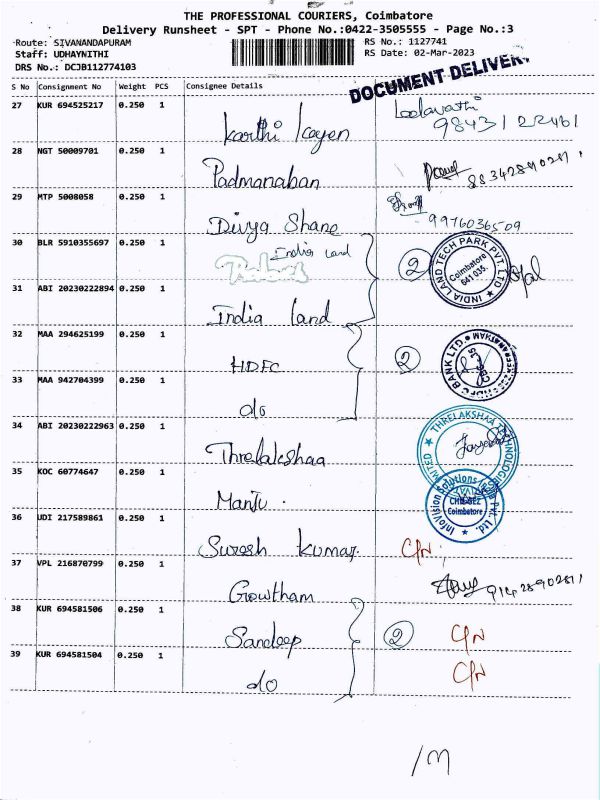 THE PROFESSIONAL COURIERS, Coimbatore
Delivery Runsheet - SPT - Phone No.:0422-3505555 - Page No.:3
Route: SIVANANDAPURAM
Staff: UDHAYNITHI
DRS No.: DCJB112774103
RS No.: 1127741
RS Date: 02-Mar-2023
DOCUMENT DELIVERY
S No Consignment No Weight PCS Consignee Details
27 KUR 694525217 0.250 1 Karthi Leelavathi
9843122461
28 NGT 50009701 0.250 1 Padmanaban
29 MTP 5008058 0.250 1 Divya Shane 9976036509
30 BLR 5910355697 0.250 1 India Land 2
INDIA LAND TECH PARK PVT. LTD
Coimbatore
641 035.
31 ABI 20230222894 0.250 1 India Land
32 MAA 294625199 0.250 1 HDFC 2
HDFC BANK LTD.
33 MAA 942704399 0.250 1 do
34 ABI 20230222963 0.250 1 Threlakshaa
THRELAKSHAA TECHNOLOGIES
35 KOC 60774647 0.250 1 Manju
InfoVision Solutions Pvt. Ltd.
Coimbatore
36 UDI 217589861 0.250 1 Suresh Kumar C/N
37 VPL 216870799 0.250 1 Growtham
38 KUR 694581506 0.250 1 Sandeep 2 C/N
39 KUR 694581504 0.250 1 do C/N